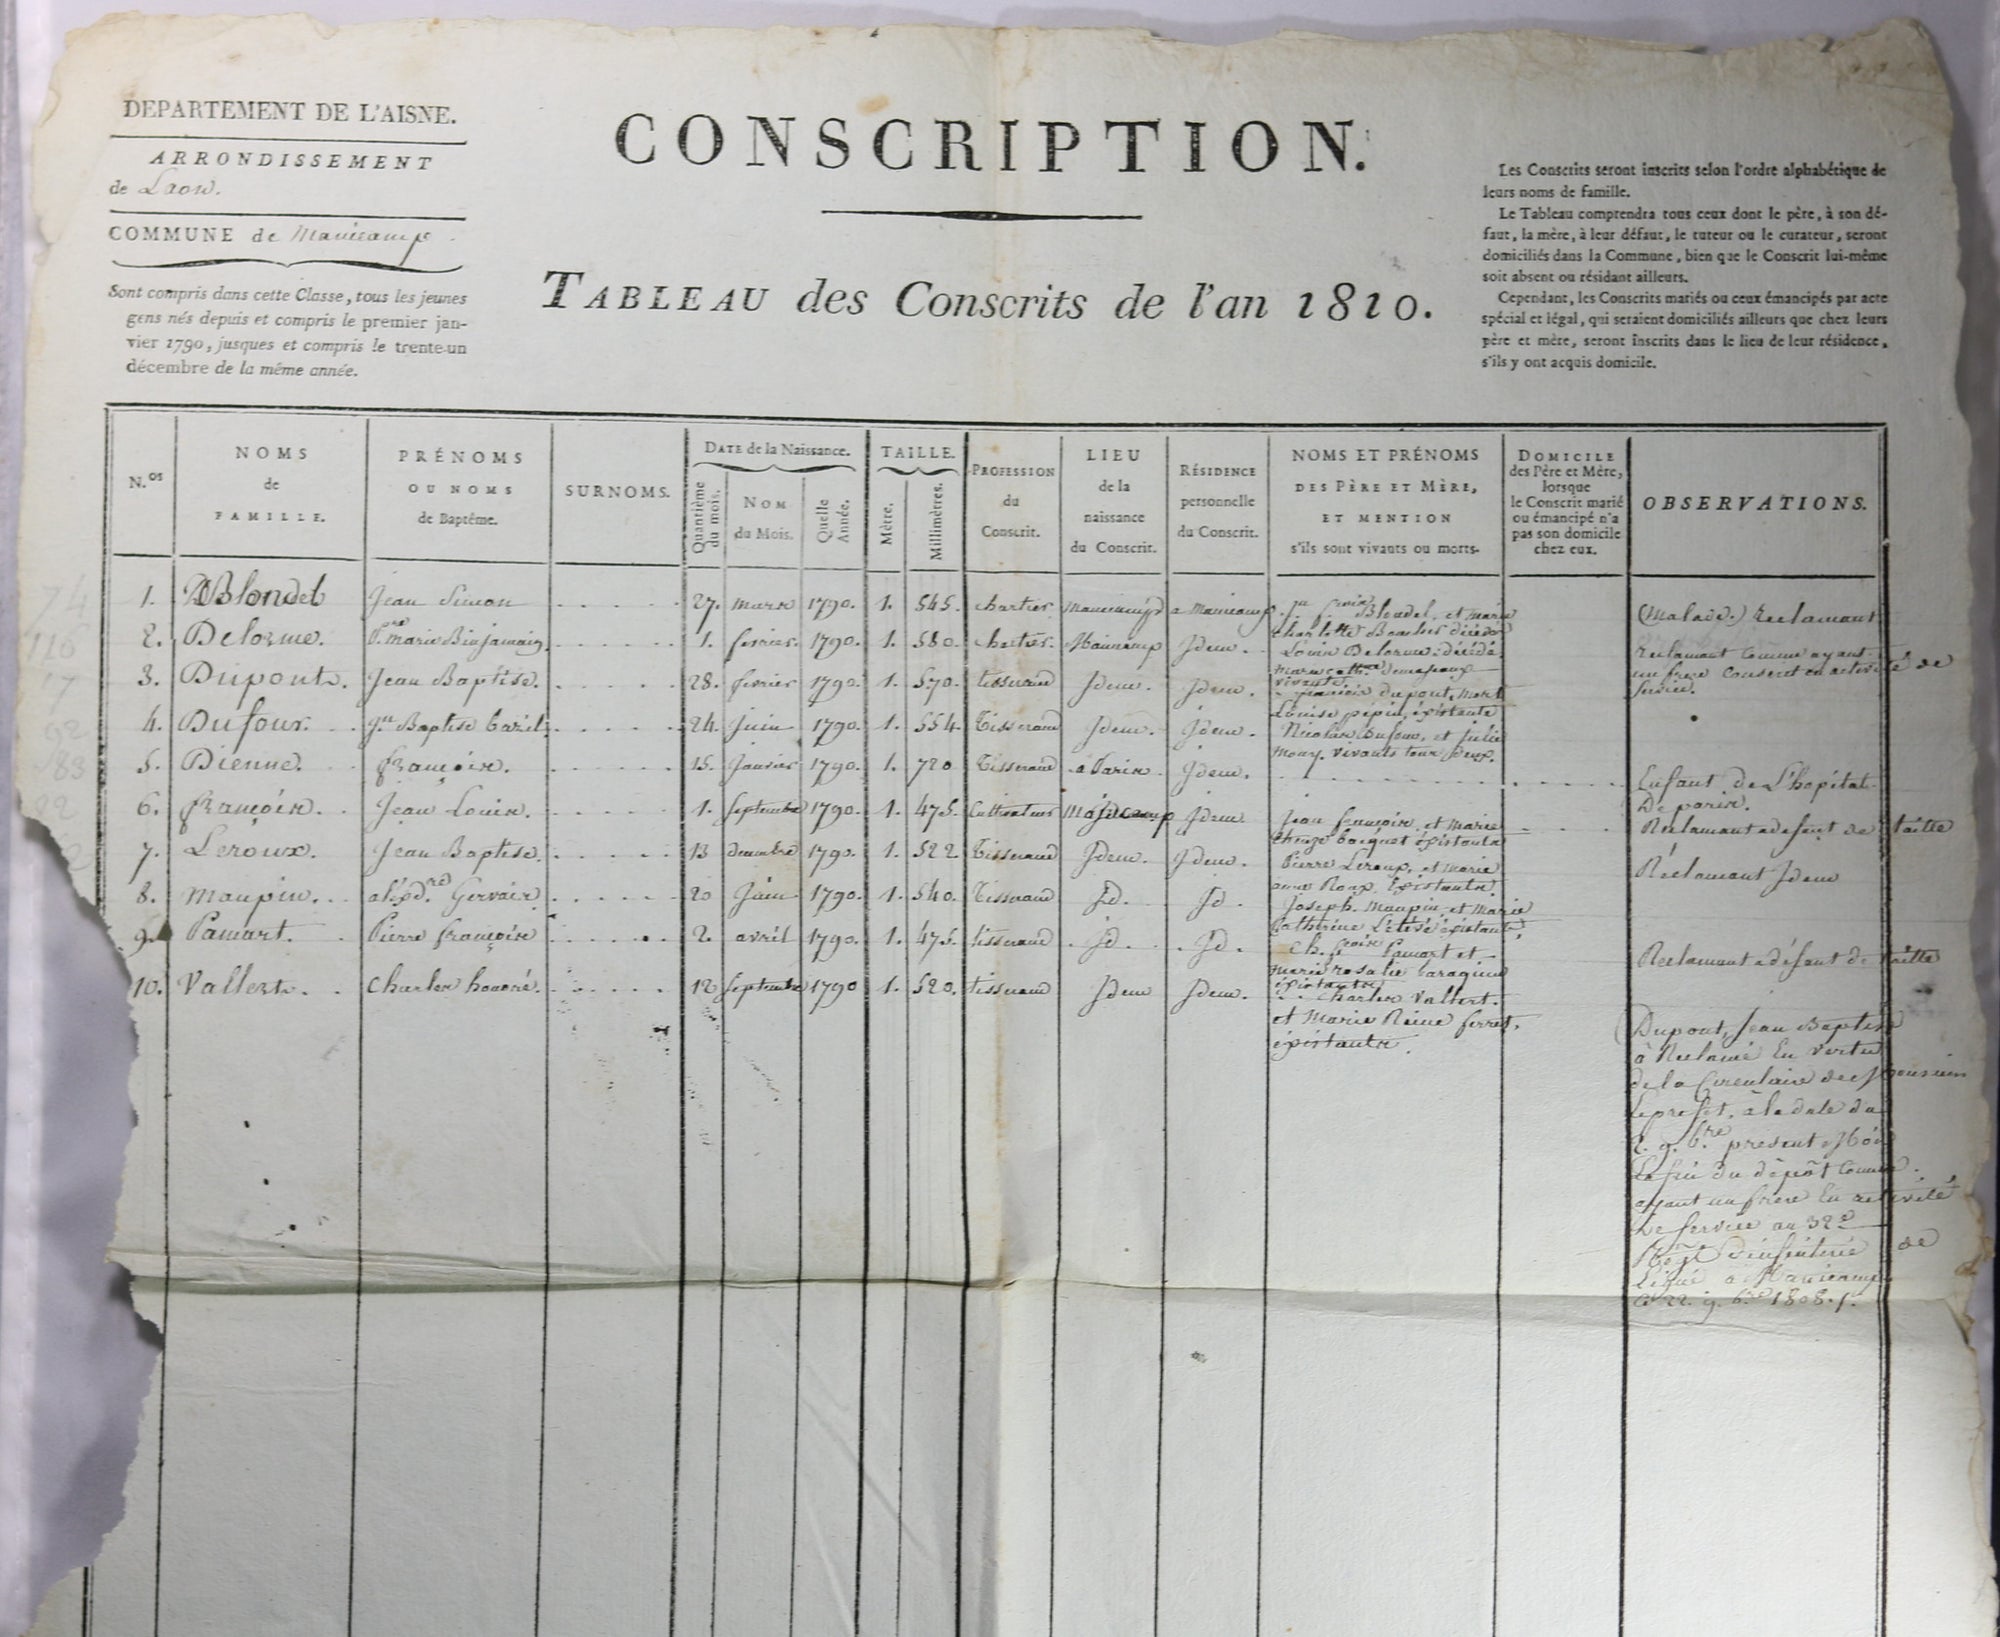 DEPARTEMENT DE L'AISNE.
ARRONDISSEMENT
de Laon.
COMMUNE de Manicamp
Sont compris dans cette Classe, tous les jeunes
gens nés depuis et compris le premier jan-
vier 1790, jusques et compris le trente-un
décembre de la même année.
CONSCRIPTION.
TABLEAU des Conscrits de l'an 1810.
Les Conscrits seront inscrits selon l'ordre alphabétique de
leurs noms de famille.
Le Tableau comprendra tous ceux dont le père, à son dé-
faut, la mère, à leur défaut, le tuteur ou le curateur, seront
domiciliés dans la Commune, bien que le Conscrit lui-même
soit absent ou résidant ailleurs.
Cependant, les Conscrits mariés ou ceux émancipés par acte
spécial et légal, qui seraient domiciliés ailleurs que chez leurs
père et mère, seront inscrits dans le lieu de leur résidence,
s'ils y ont acquis domicile.
N.os
NOMS
de
FAMILLE.
PRÉNOMS
OU NOMS
de Baptême.
SURNOMS.
DATE de la Naissance.
Quantième
du mois.
NOM
du Mois.
Quelle
Année.
TAILLE.
Mètre.
Millimètres.
PROFESSION
du
Conscrit.
LIEU
de la
naissance
du Conscrit.
RÉSIDENCE
personnelle
du Conscrit.
NOMS ET PRÉNOMS
DES PÈRE ET MÈRE,
ET MENTION
s'ils sont vivants ou morts.
DOMICILE
des Père et Mère,
lorsque
le Conscrit marié
ou émancipé n'a
pas son domicile
chez eux.
OBSERVATIONS.
1. Blondel Jean Simon 27. mars 1790. 1. 545. chartier Manicamp a Manicamp. Jn. froix Blondel, et marie
Charlotte Boulier décédés
(Malade.) Reclamant
2. Delorme. P.re marie Binjamain 1. fevrier 1790. 1. 580. chartier Manicamp Idem. Louis Delorme décédé
marie cath.ne demaseaux
vivante
Reclamant Comme ayant
un frere Conscrit en activité de
Service.
3. Dupont. Jean Baptise. 28. fevrier 1790. 1. 570. tisserand Idem. Idem. françois dupont, mort
Louise pépin, éxistante
4. Dufour. Jn. Baptise bazil 24. Juin 1790. 1. 554. Tisserand Idem. Idem. Nicolas Dufour, et Julie
Mony. vivants tous deux.
5. Dienne. françois. 15. Janvier 1790. 1. 720 Tisserand a Paris Idem.
Enfant de L'hopital
De paris.
6. françois. Jean Louis. 1. Septembre 1790. 1. 475. Cultivateur Manicamp Idem Jean françois et Marie
therèze boquet éxistants
Réclamant a defaut de taille
7. Leroux. Jean Baptise. 13 decembre 1790. 1. 522 Tisserand Idem. Idem. Pierre Leroux, et Marie
anne Roux Existants.
Réclamant Idem
8. Maupin. alexd.re Gervais 20 Juin 1790. 1. 540. Tisserand Id. Id. Joseph. Maupin et Marie
Catherine Létivé éxistants
9. Pamart. Pierre françois 2. avril 1790. 1. 475. tisserand Id. Id. Ch. froix Pamart et
marie rosalie baragine
éxistants
Reclamant a défaut de taille
10. Vallert. Charles honoré. 12 Septembre 1790 1. 520. tisserand Idem Idem. Charles Valbert.
et Marie Reine ferret,
éxistants.
Dupont, Jean Baptise
à Reclamé En vertu
de la Circulaire de Monsieur
Le prefet, à la date du
2. 9.bre present Mois
La fin du dépôt Comme
ayant un frere En activité
De Service au 32e
Regt D'infenterie de
Ligne a Manicamp
Ce 22. 9.bre 1808.